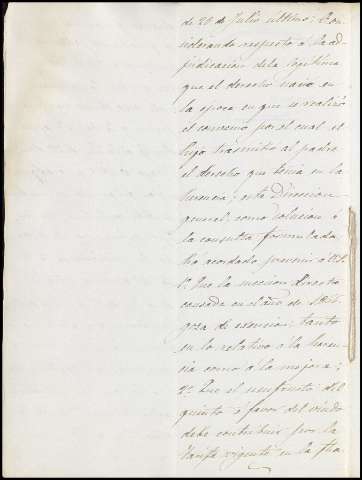 de 20 de Julio ultimo; Con-
siderando respecto á la ad-
judicacion de la legitima
que el derecho nació en
la epoca en que se realizó
el convenio por el cual el
hijo trasmitio al padre
el derecho que tenia en la
herencia; esta Direccion
general como solucion á
la consulta formulada,
ha acordado prevenir á V.S.
1º Que la sucesion directa
causada en el año de
goza de exencion, tanto
en lo relativo á la heren-
cia como á la mejora;
2º Que el usufructo del
quinto á favor del viudo
debe contribuir por la
tarifa vigente en la fha